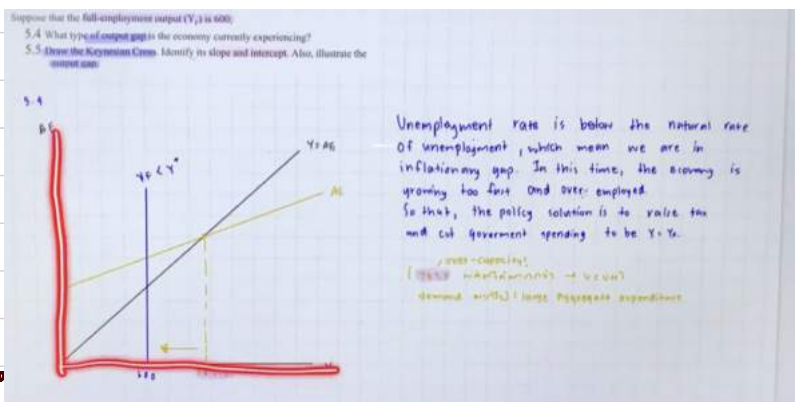 Suppose that the full-employment output (Yₑ) is 600;
5.4 What type of output gap is the economy currently experiencing?
5.5 Draw the Keynesian Cross. Identify its slope and intercept. Also, illustrate the
output gap.
5.4
AE
YF < Y*
Y = AE
AE
600
Unemployment rate is below the natural rate
of unemploiment, which mean we are in
inflationary gap. In this time, the economy is
growing too fast and over-employed.
So that, the policy solution is to raise tax
and cut Goverment spending to be Y=
over-capacity!
demand large Aggregate expenditure